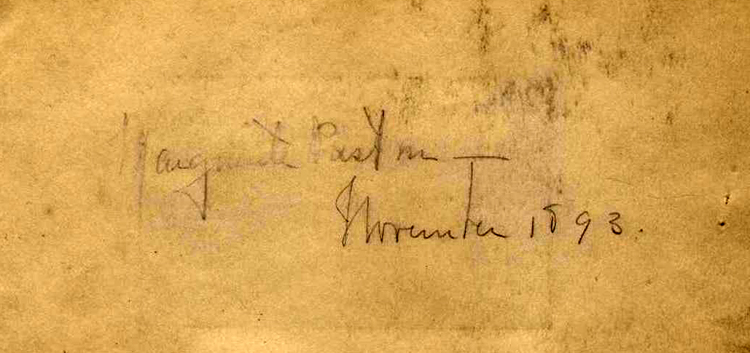 Marguerite Paston
November 1893.